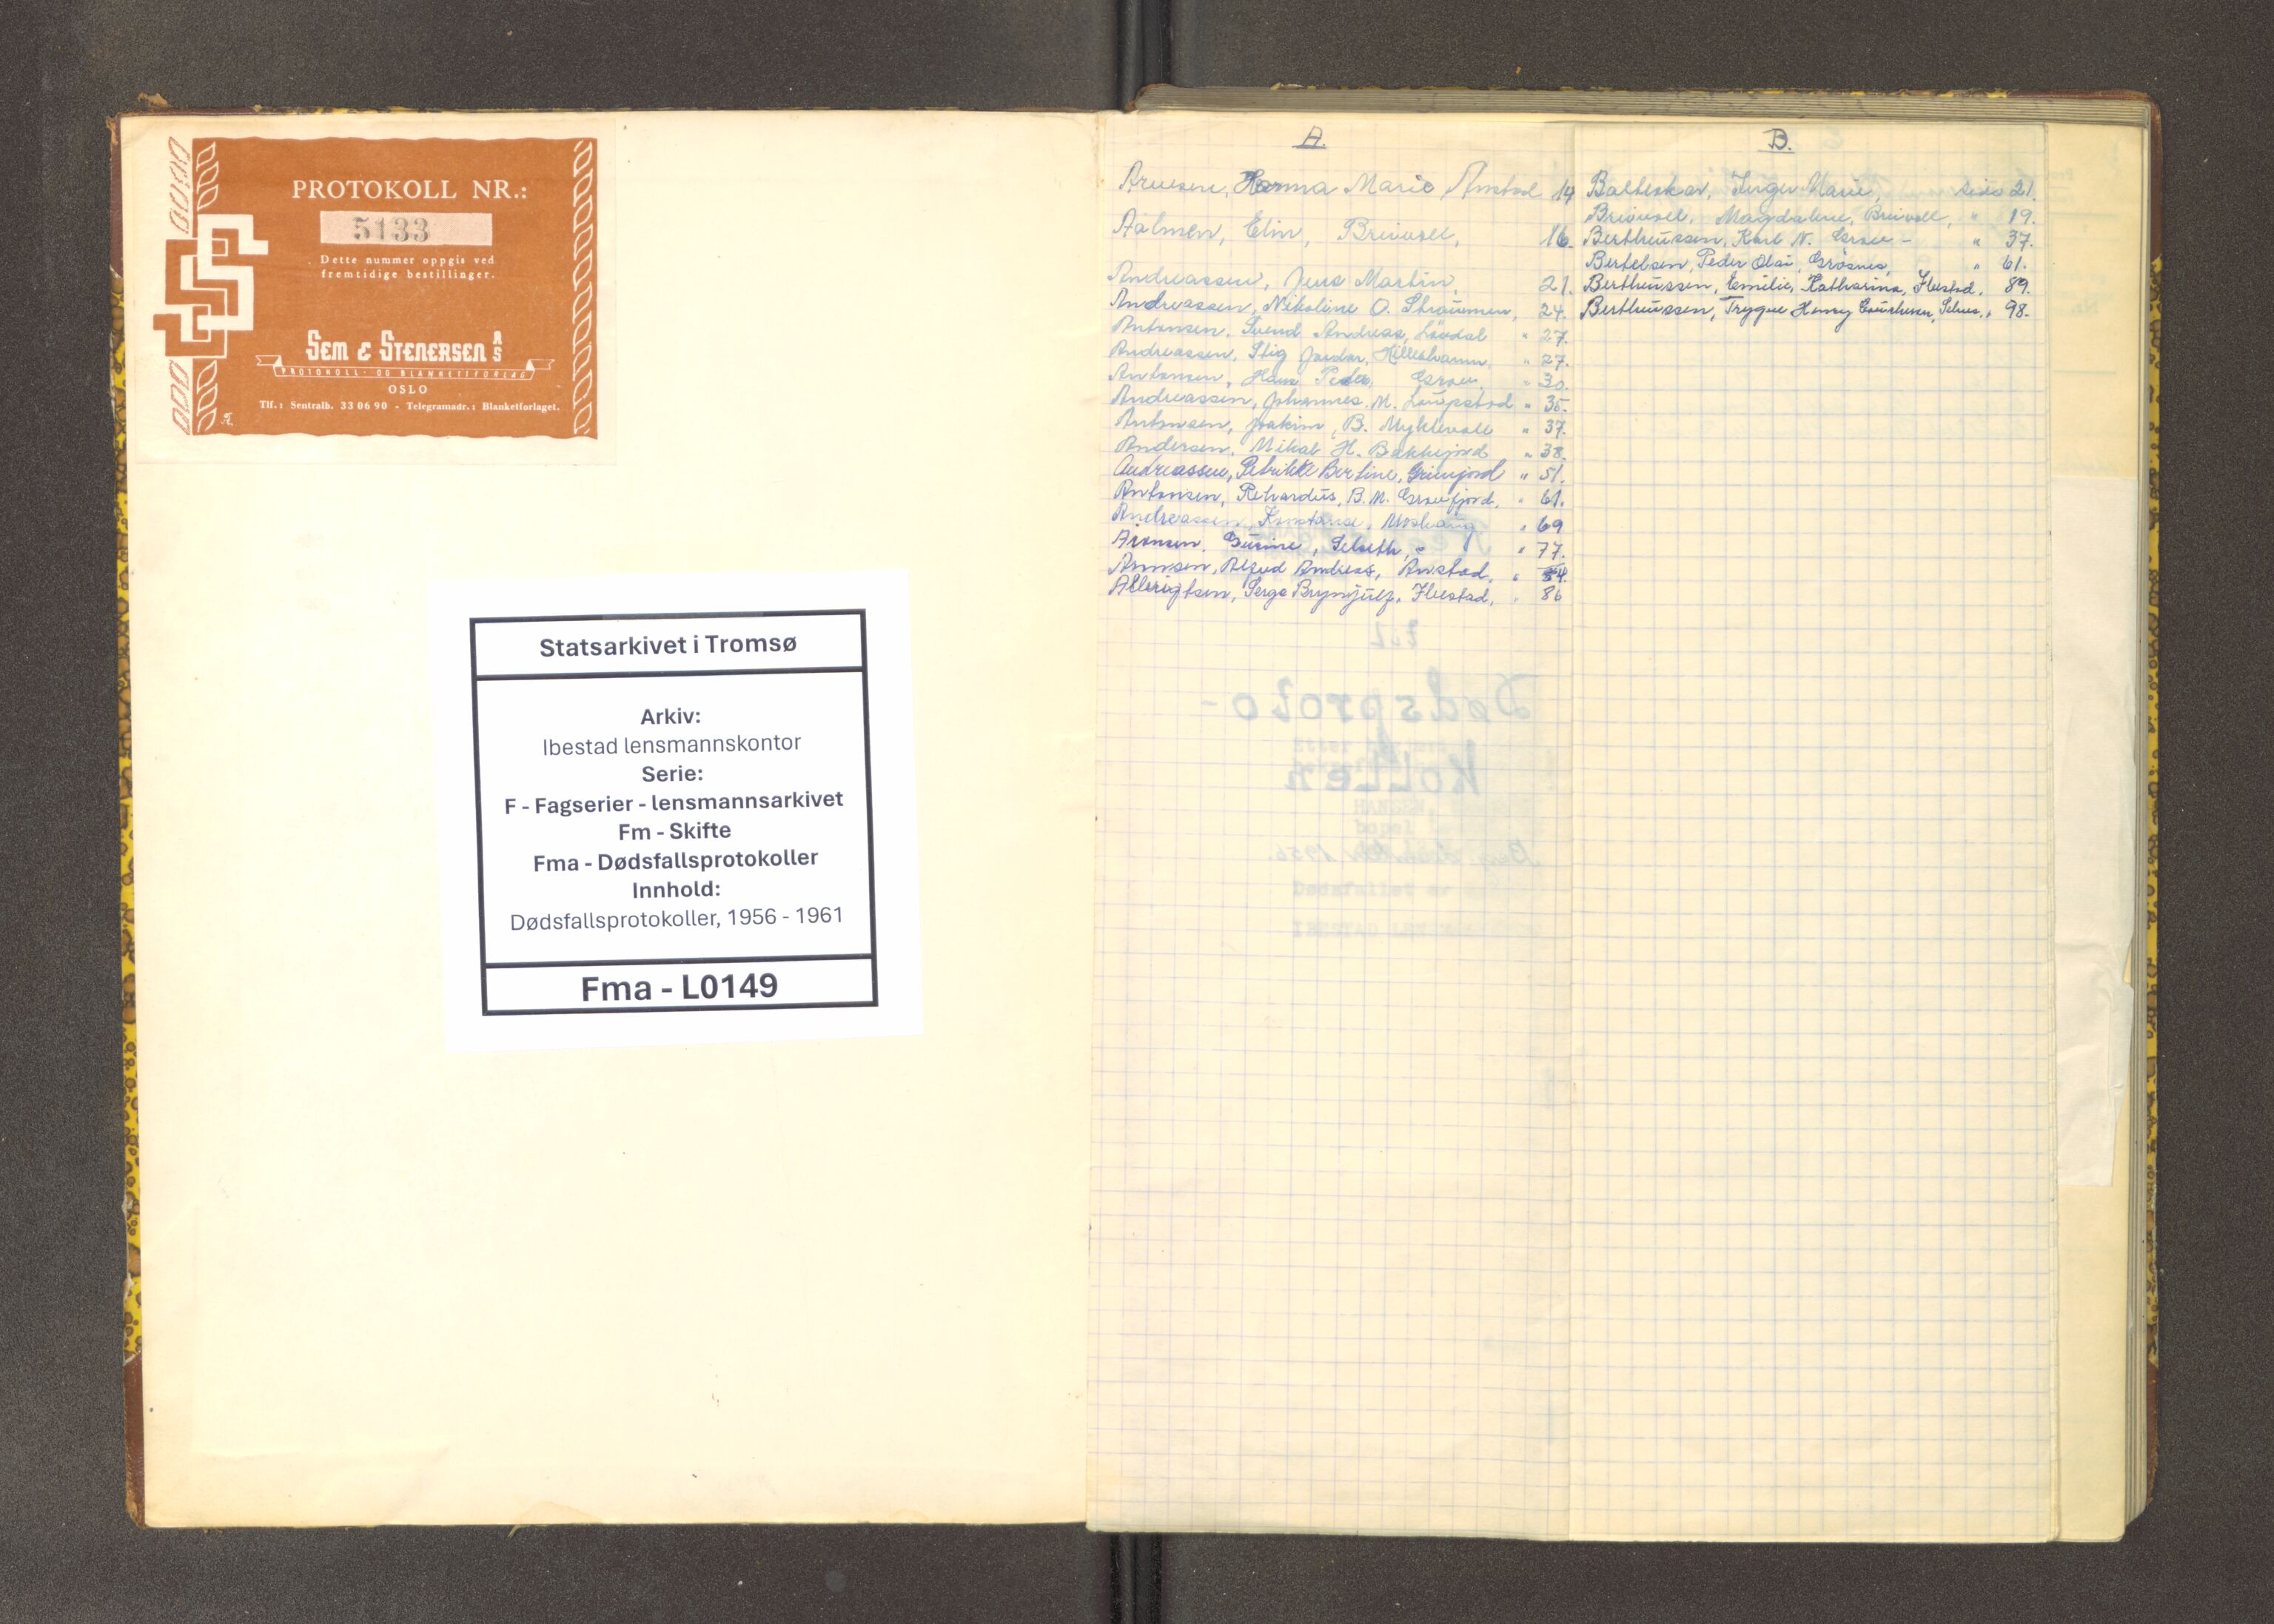 PROTOKOLL NR.:
5133
Dette nummer oppgis ved
fremtidige bestillinger.
SEM & STENERSEN A/S
PROTOKOLL- OG BLANKETTFORLAG
OSLO
Tlf.: Sentralb. 33 06 90 - Telegramadr.: Blanketforlaget.
Statsarkivet i Tromsø
Arkiv:
Ibestad lensmannskontor
Serie:
F - Fagserier - lensmannsarkivet
Fm - Skifte
Fma - Dødsfallsprotokoller
Innhold:
Dødsfallsprotokoller, 1956 - 1961
Fma - L0149
A.
Arnesen, Hanna Marie Anstad 14
Aalmen, Elin, Breivoll, 16.
Andreassen, Jens Martin, 21.
Andreassen, Nikoline O. Straumen, 24.
Antonsen, Svend Andreas, Løvdal " 27.
Andreassen, Stig Jardar, Hilleshamn, " 27.
Antonsen, Hans Peder, Grov, " 30.
Andreassen, Johannes M. " 35.
Antonsen, Joakim, B. Myklevoll " 37.
Andersen, Mikal H. Bakkejord " 38.
Andreassen, Petrikke Bertine, " 51.
Antonsen, Rikardus, B. M. Grovfjord, " 61.
Andreassen, Konstanse, " 69
Aronsen, Gusine, Selseth, " 77.
Arnesen, Alfred Andreas, Anstad, " 84.
Albrigtsen, Serge Brynjulf, Ibestad, " 86
B.
Balteskar, Inger Marie, side 21.
Breivoll, Magdalene, Breivoll, " 19.
Bertheussen, Karl N. Grov - " 37.
Bertelsen, Peder Olai, Grøsnes, " 61.
Bertheussen, Emilie Katharina, Ibestad, 89.
Bertheussen, Trygve Henry " 98.